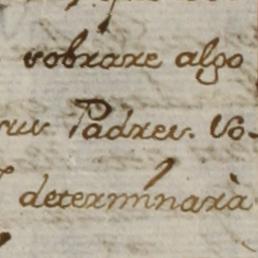 sobrare algo
sus Padres. So-
determinarà